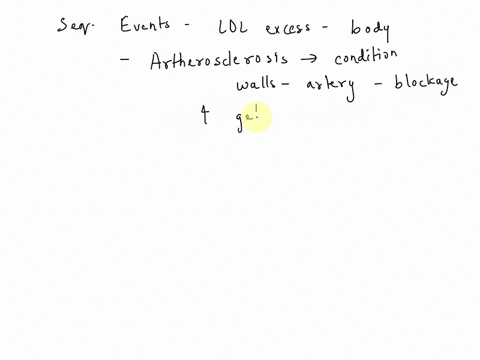 Seq. Events - LDL excess - body
- Artherosclerosis → condition
walls - artery - blockage
↑